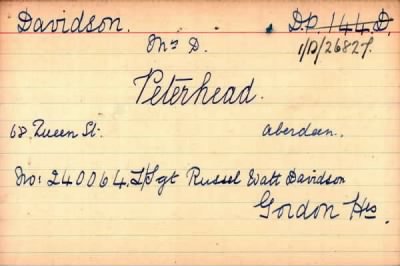 Davidson. D.P. 144 D.
Mr D. 1/D/26827.
Peterhead.
68 Queen St. Aberdeen.
No: 240064. L/Sgt Russel Watt Davidson
Gordon Hrs